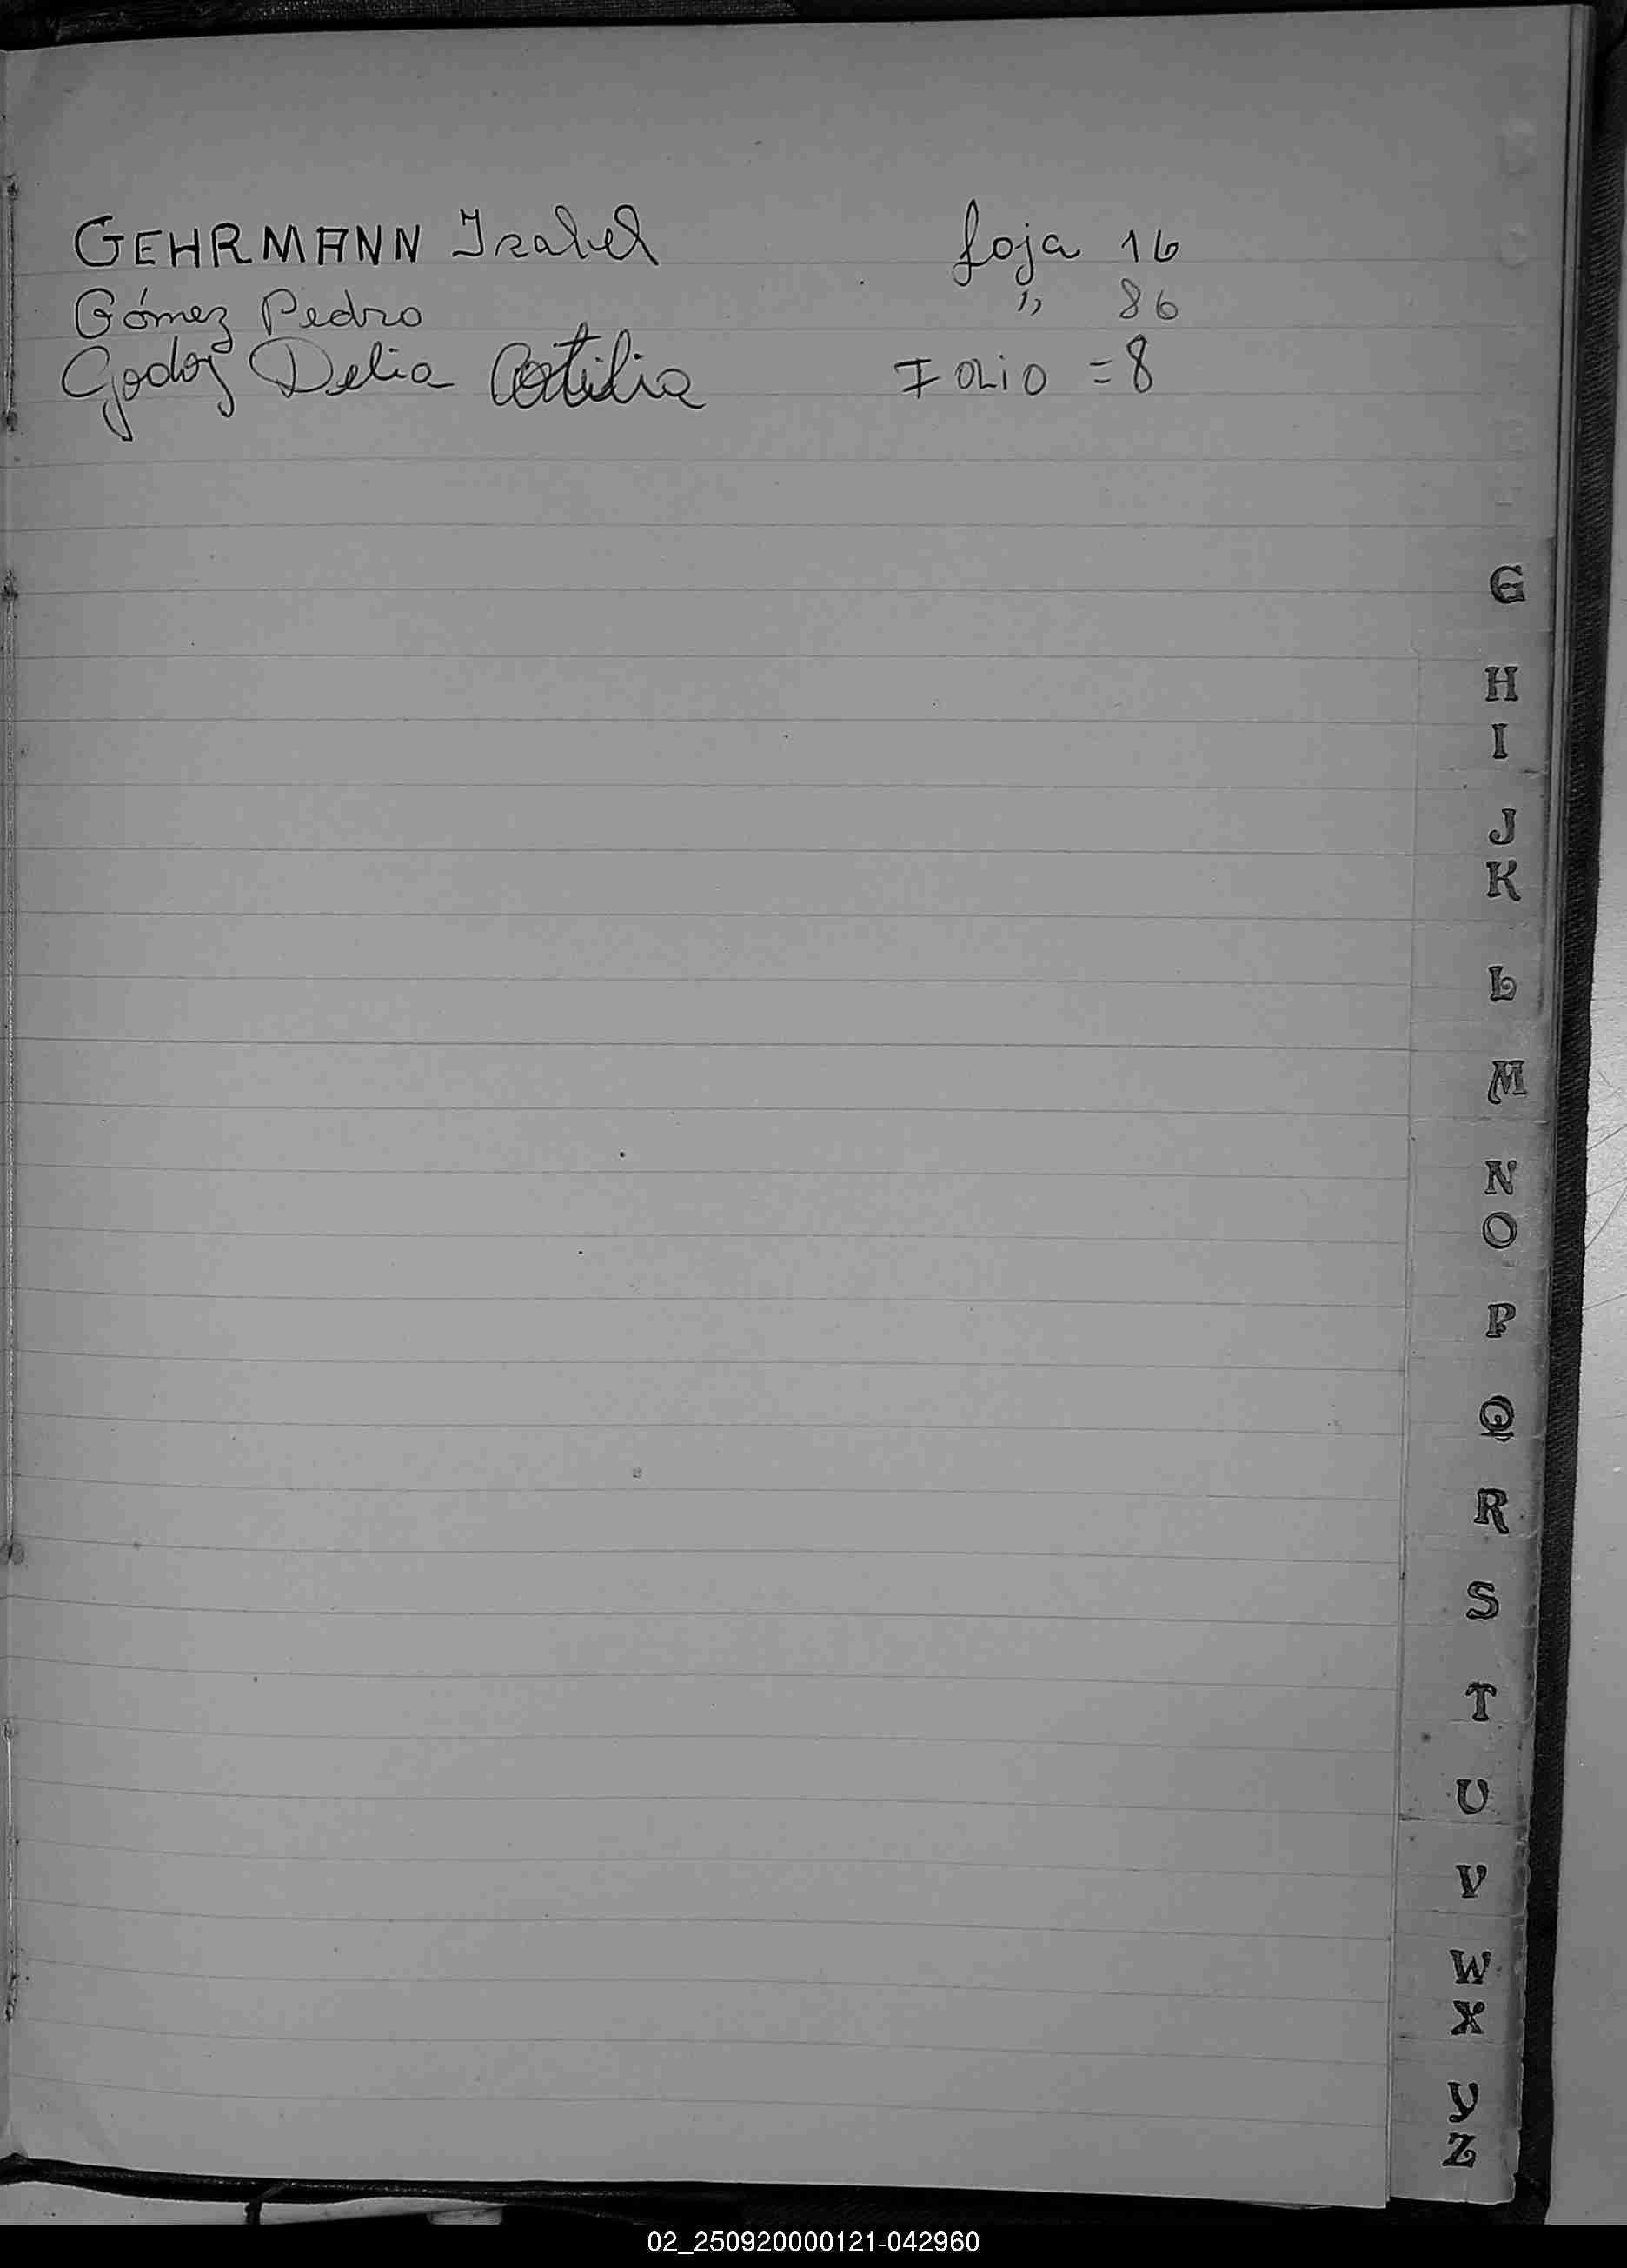 GEHRMANN Isabel foja 16
Gómez Pedro " 86
Godoy Delia Otilia FOLiO = 8
G
H
I
J
K
L
M
N
O
P
Q
R
S
T
U
V
W
X
Y
Z
02_250920000121-042960